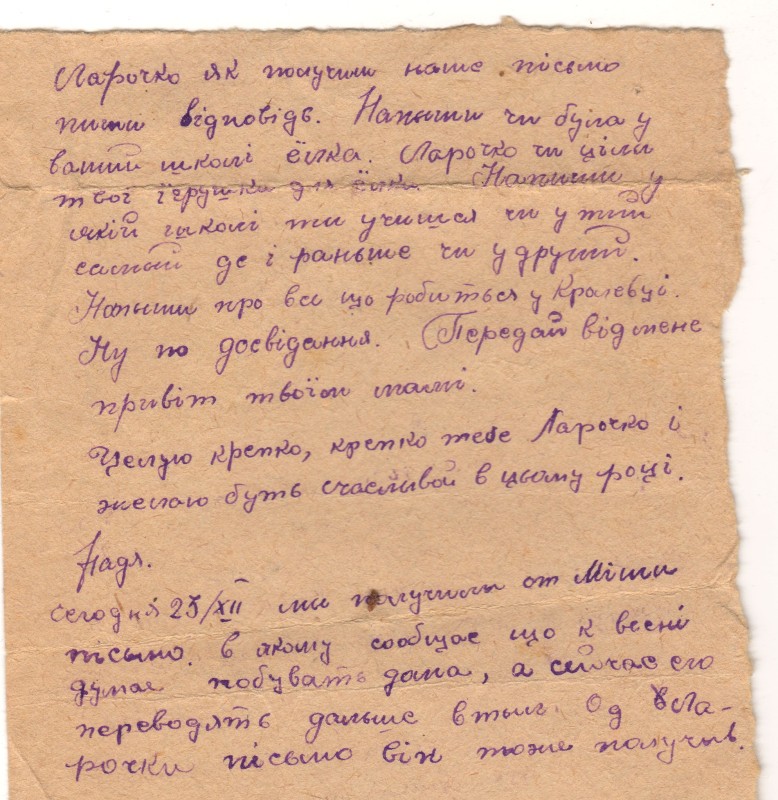 Ларочко як получиш наше пісьмо
пиши відповідь. Напыши чи була у
вашій школі ёлка. Ларочко чи цілі
твої їгрушки для ёлки Напиши у
якій школі ти учишся чи у тій
самай де і раньше чи у другій.
Напыши про все що робиться у Кролевці.
Ну по досвідання. Передай від мене
привіт твоїй мамі.
Целую крепко, крепко тебе Ларочко і
желаю буть счасливой в цьому році.
Надя.
Сегодня 25/XII ми получили от Міши
пісьмо. в якому сообщає що к весні
думає побувать дома, а сейчас его
переводять дальше в тыл. Од Ла-
рочки пісьмо він тоже получив.